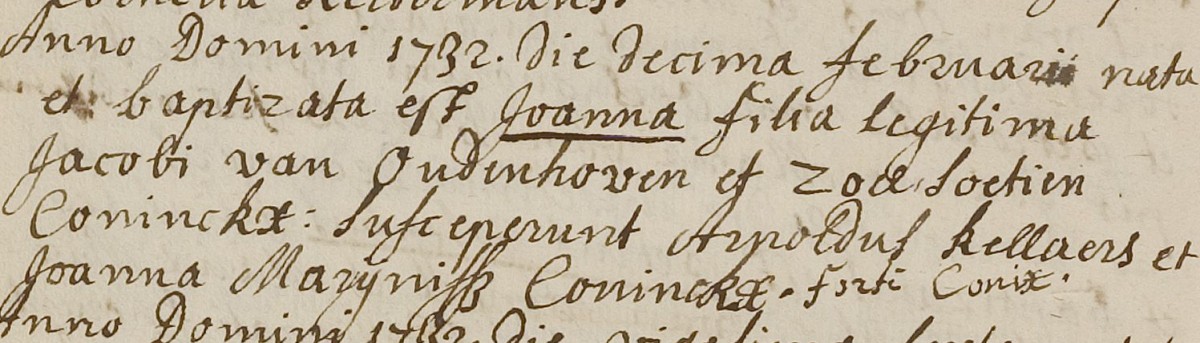 Anno Domini 1732. die decima februarii nata
et baptizata est Joanna filia legitima
Jacobi van Oudenhoven et Zoetien
Coninckx: susceperunt Arnoldus kellaers et
Joanna Marynisse Coninckx. forti Conix.
Anno Domini 1732. die